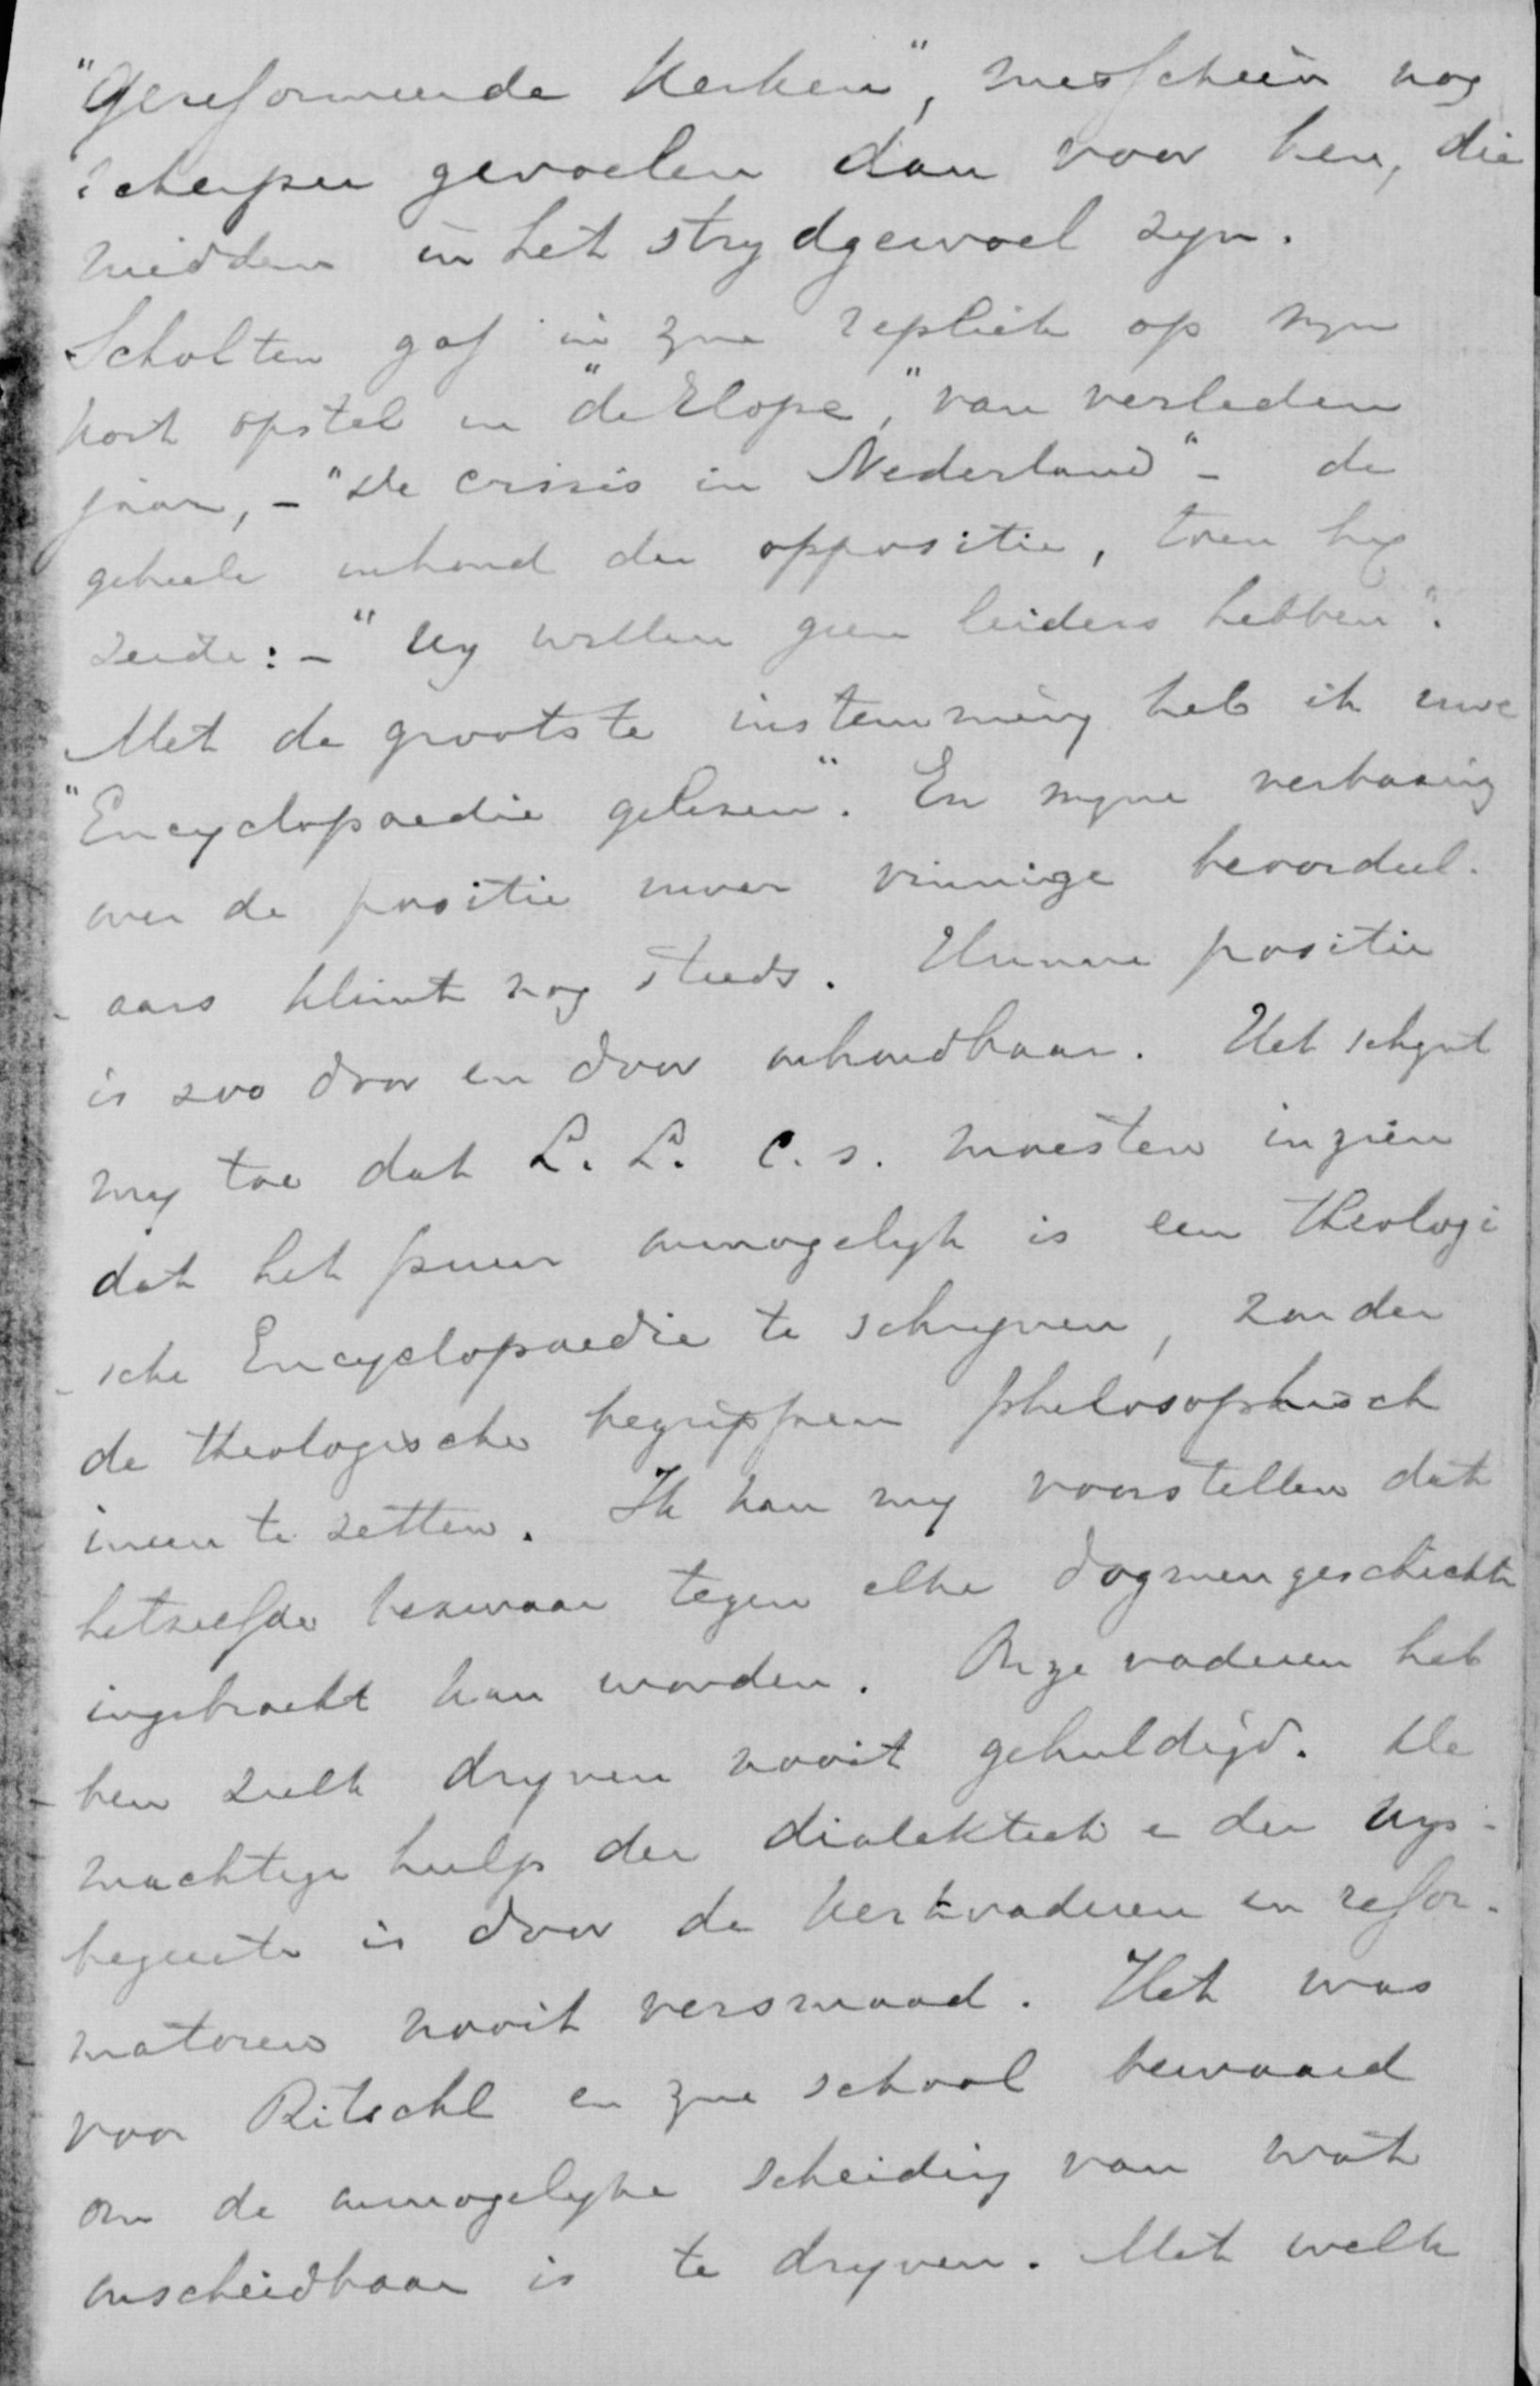 "Gereformeerde Kerken", misschien nog
scherper gevoelen dan voor hen, die
midden in het strydgewoel zyn.
Scholten gaf in zyne repliek op myn
kort opstel in "de Hope", van verleden
jaar, - "De crisis in Nederland" - de
geheele inhoud der oppositie, toen hy
zeide: - "Wy willen geen leiders hebben".
Met de grootste instemming heb ik uwe
"Encyclopaedie gelezen". En myne verbazing
over de positie uwer vinnige beoordeel-
aars klimt nog steeds. Hunne positie
is zoo door en door onhoudbaar. Het schynt
my toe dat L. L. c.s. moesten inzien
dat het puur onmogelyk is een theologi
-sche Encyclopaedie te schryven, zonder
de theologische begrippen philosophisch
ineen te zetten. Ik kan my voorstellen dat
hetzelfde bezwaar tegen elke dogmengeschichte
ingebracht kan worden. Onze vaderen heb
-ben zulk dryven nooit gehuldigd. De
machtige hulp der dialektiek e der wys-
begeerte is door de kerkvaderen en refor-
matoren nooit versmaad. Het was
voor Ritschl en zyne school bewaard
om de onmogelyke scheiding van wat
onscheidbaar is te dryven. Met welk